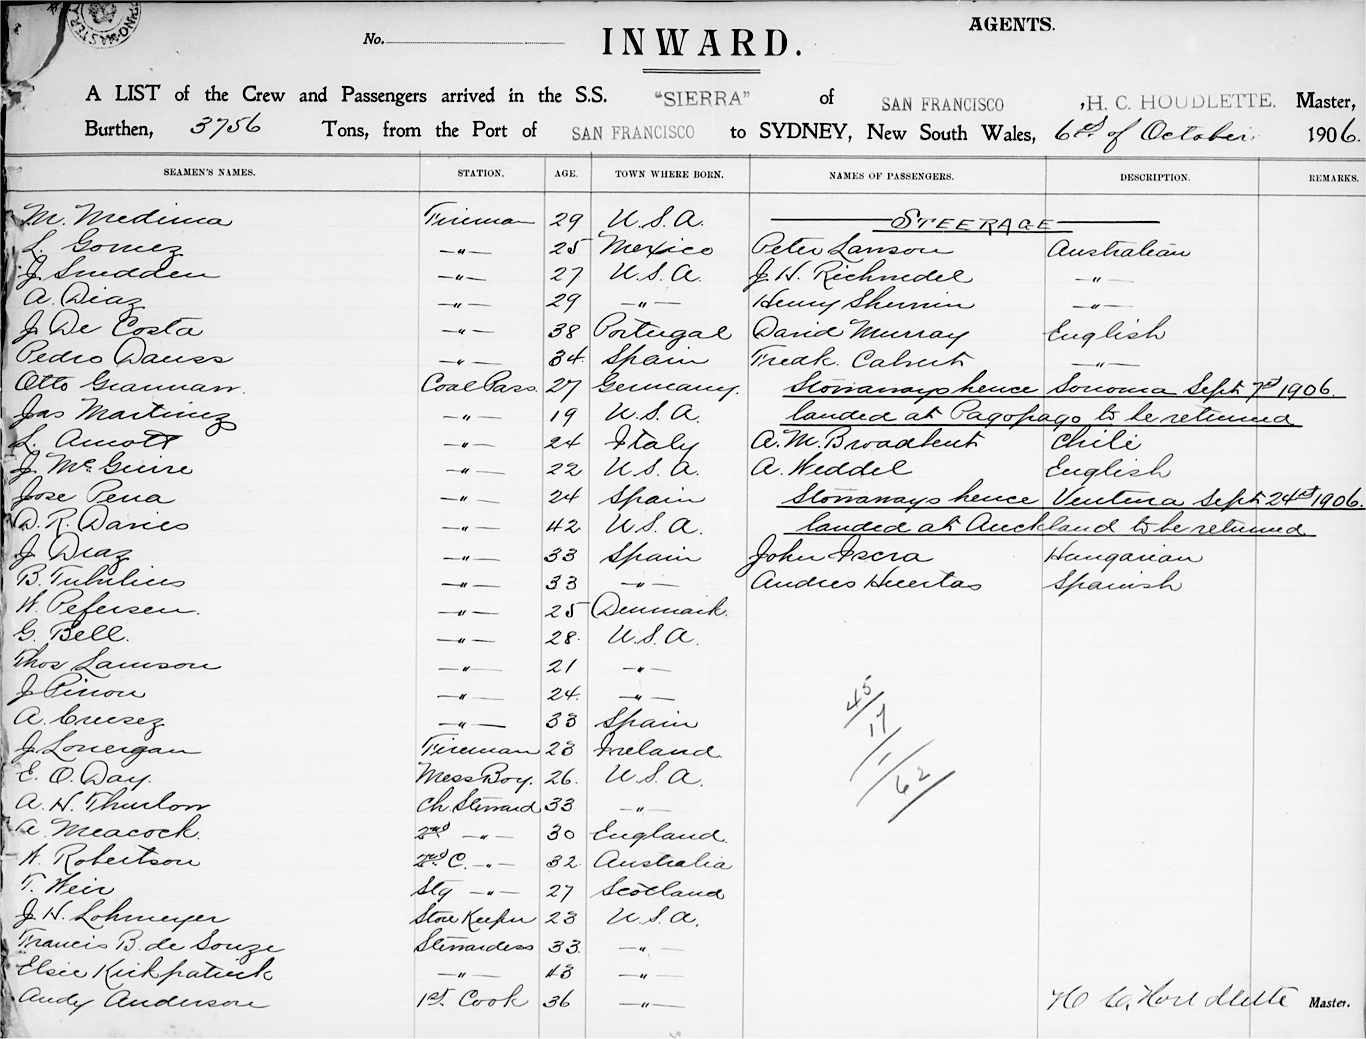 AGENTS.
No. INWARD.
A LIST of the Crew and Passengers arrived in the S.S. "SIERRA" of SAN FRANCISCO, H. C. HOUDLETTE. Master,
Burthen, 3756 Tons, from the Port of SAN FRANCISCO to SYDNEY, New South Wales, 6th of October 1906.
SEAMEN'S NAMES. STATION. AGE. TOWN WHERE BORN. NAMES OF PASSENGERS. DESCRIPTION. REMARKS.
M. Medina Fireman 29 U.S.A. STEERAGE
L. Gomez —"— 25 Mexico Peter Lawson Australian
J. Snedden —"— 27 U.S.A. J. H. —"—
A. Diaz —"— 29 —"— Henry —"—
J. De Costa —"— 38 Portugal David Murray English
Pedro —"— 34 Spain —"—
Otto Coal Pass. 27 Germany. Stowaways hence Sonoma Sept 7th 1906.
Jas Martinez —"— 19 U.S.A. landed at Pagopago to be returned
L. Amott —"— 24 Italy A. M. Broadbent Chili
J. McGuire —"— 22 U.S.A. A. Weddel English
Jose Pena —"— 24 Spain Stowaways hence Ventura Sept. 24th 1906.
D. R. Davies —"— 42 U.S.A. landed at Auckland to be returned
J. Diaz —"— 33 Spain John Hungarian
B. —"— 33 —"— Andres Huertas Spanish
W. Petersen. —"— 25 Denmark.
G. Bell. —"— 28 U.S.A.
Thos Lamson —"— 21 —"—
J. Pinon —"— 24 —"—
A. —"— 33 Spain
J. Lonergan Fireman 23 Ireland
E. O. Day. Mess Boy. 26 U.S.A.
A. H. Thurlow Ch Steward 33 —"—
A. Meacock. 2nd —"— 30 England
W. Robertson 2nd C. —"— 32 Australia
T. Weir Stg —"— 27 Scotland
J. H. Lohmeyer Store Keeper 23 U.S.A.
Francis B. de Souze Stewardess 33 —"—
Elsie Kirkpatrick —"— 43 —"—
Andy Anderson 1st Cook 36 —"— H. C. Houdlette Master.
45
17
1
62